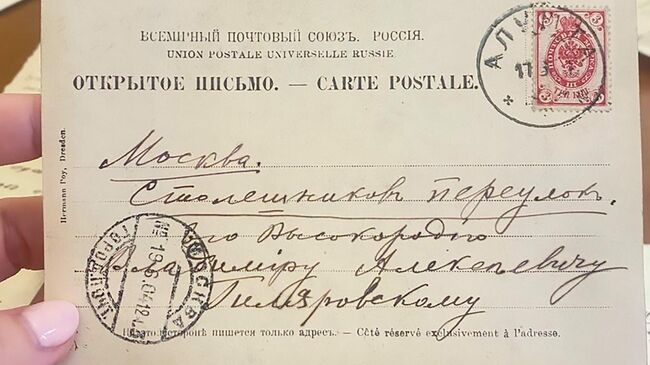 ВСЕМІРНЫЙ ПОЧТОВЫЙ СОЮЗЪ. РОССІЯ.
UNION POSTALE UNIVERSELLE RUSSIE
ОТКРЫТОЕ ПИСЬМО. — CARTE POSTALE.
АЛУШТА
17
3 3
3 3
Hermann Poy, Dresden.
Москва.
Столешников переулокъ.
Его Высокородію
Владиміру Алексѣевичу
Гиляровскому
МОСКВА
19
На этой сторонѣ пишется только адресъ. — Côté réservé exclusivement à l'adresse.